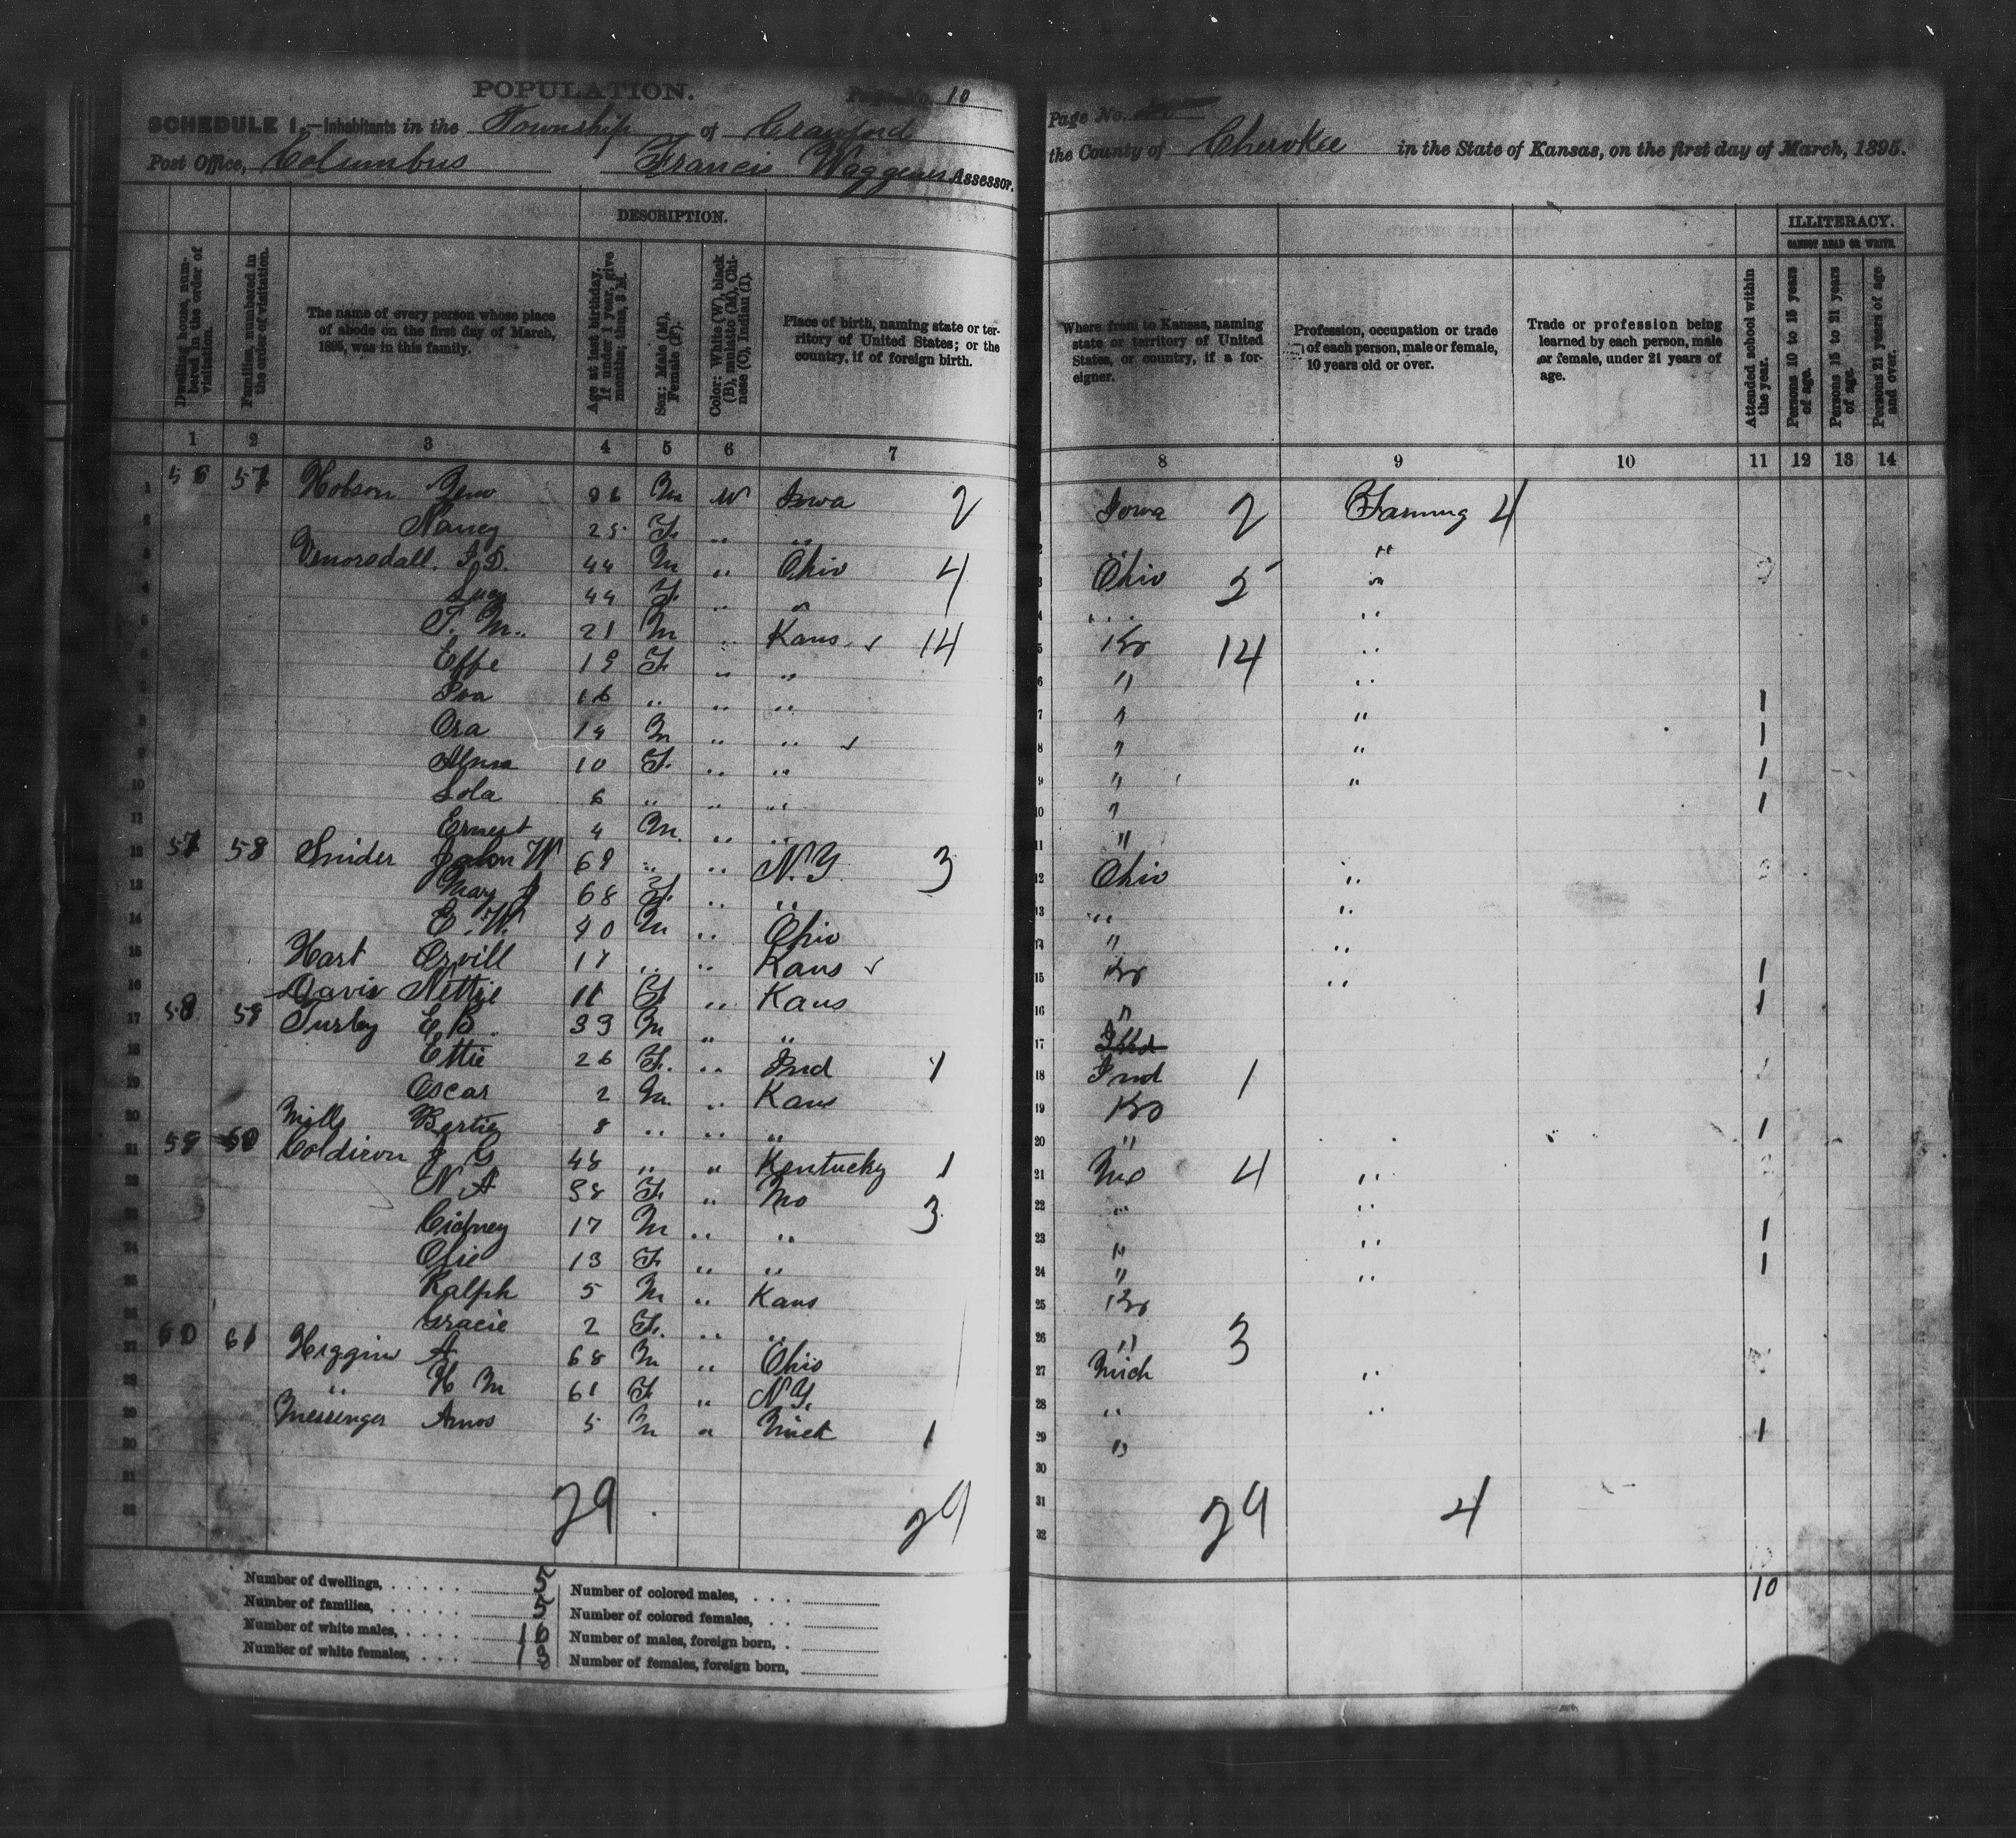 POPULATION.
Page No. 10
SCHEDULE 1.—Inhabitants in the Township of Crawford
Post Office, Columbus Francis Waggener Assessor.
Page No.
the County of Cherokee in the State of Kansas, on the first day of March, 1895.
DESCRIPTION.
ILLITERACY.
CANNOT READ OR WRITE.
Dwelling house, numbered in the order of visitation.
Families, numbered in the order of visitation.
The name of every person whose place of abode on the first day of March, 1895, was in this family.
Age at last birthday. If under 1 year, give months; thus, 3 M.
Sex: Male (M), Female (F).
Color: White (W), black (B), mulatto (M), Chinese (C), Indian (I).
Place of birth, naming state or territory of United States; or the country, if of foreign birth.
Where from to Kansas, naming state or territory of United States, or country, if a foreigner.
Profession, occupation or trade of each person, male or female, 10 years old or over.
Trade or profession being learned by each person, male or female, under 21 years of age.
Attended school within the year.
Persons 10 to 15 years of age.
Persons 15 to 21 years of age.
Persons 21 years of age and over.
1 2 3 4 5 6 7 8 9 10 11 12 13 14
1 56 57 Hobson Zeno 26 M W Iowa 2 Iowa 2 Farming 4
2 Nancy 25 F. " " " "
3 Vanorsdall. I. D. 44 M " Ohio 4 Ohio 5 "
4 Lucy 44 F. " " " "
5 T. M. 21 M " Kans 14 Ks 14 "
6 Effe 19 F. " " " "
7 Iva 16 " " " " " 1
8 Ora 14 M " " " " 1
9 Alma 10 F. " " " " 1
10 Lola 6 " " " " 1
11 Ernest 4 M. " " "
12 57 58 Snider John W 69 " " N.Y. 3 Ohio "
13 Mary J 68 F. " " " "
14 E. W. 40 M " Ohio " "
15 Hart Orvill 17 " " Kans Ks " 1
16 Davis Nettie 11 F. " Kans " 1
17 58 59 Turley E. B. 33 M " " Ind
18 Ettie 26 F. " Ind 1 Ind 1
19 Oscar 2 M. " Kans Ks
20 Mills Bertie 8 " " " " 1
21 59 60 Coldiron J G 48 " " Kentucky 1 Mo 4 "
22 N A 38 F. " Mo " "
23 Cidney 17 M " " 3 " " 1
24 Olie 13 F. " " " " 1
25 Ralph 5 M " Kans Ks
26 Gracie 2 F. " " " 3
27 60 61 Higgins A 68 M " Ohio Mich "
28 " H M 61 F. " N.Y. " "
29 Messenger Amos 5 M " Mich 1 " 1
30
31 29 29 29 4
32
10
Number of dwellings, 5 Number of colored males,
Number of families, 5 Number of colored females,
Number of white males, 16 Number of males, foreign born,
Number of white females, 13 Number of females, foreign born,